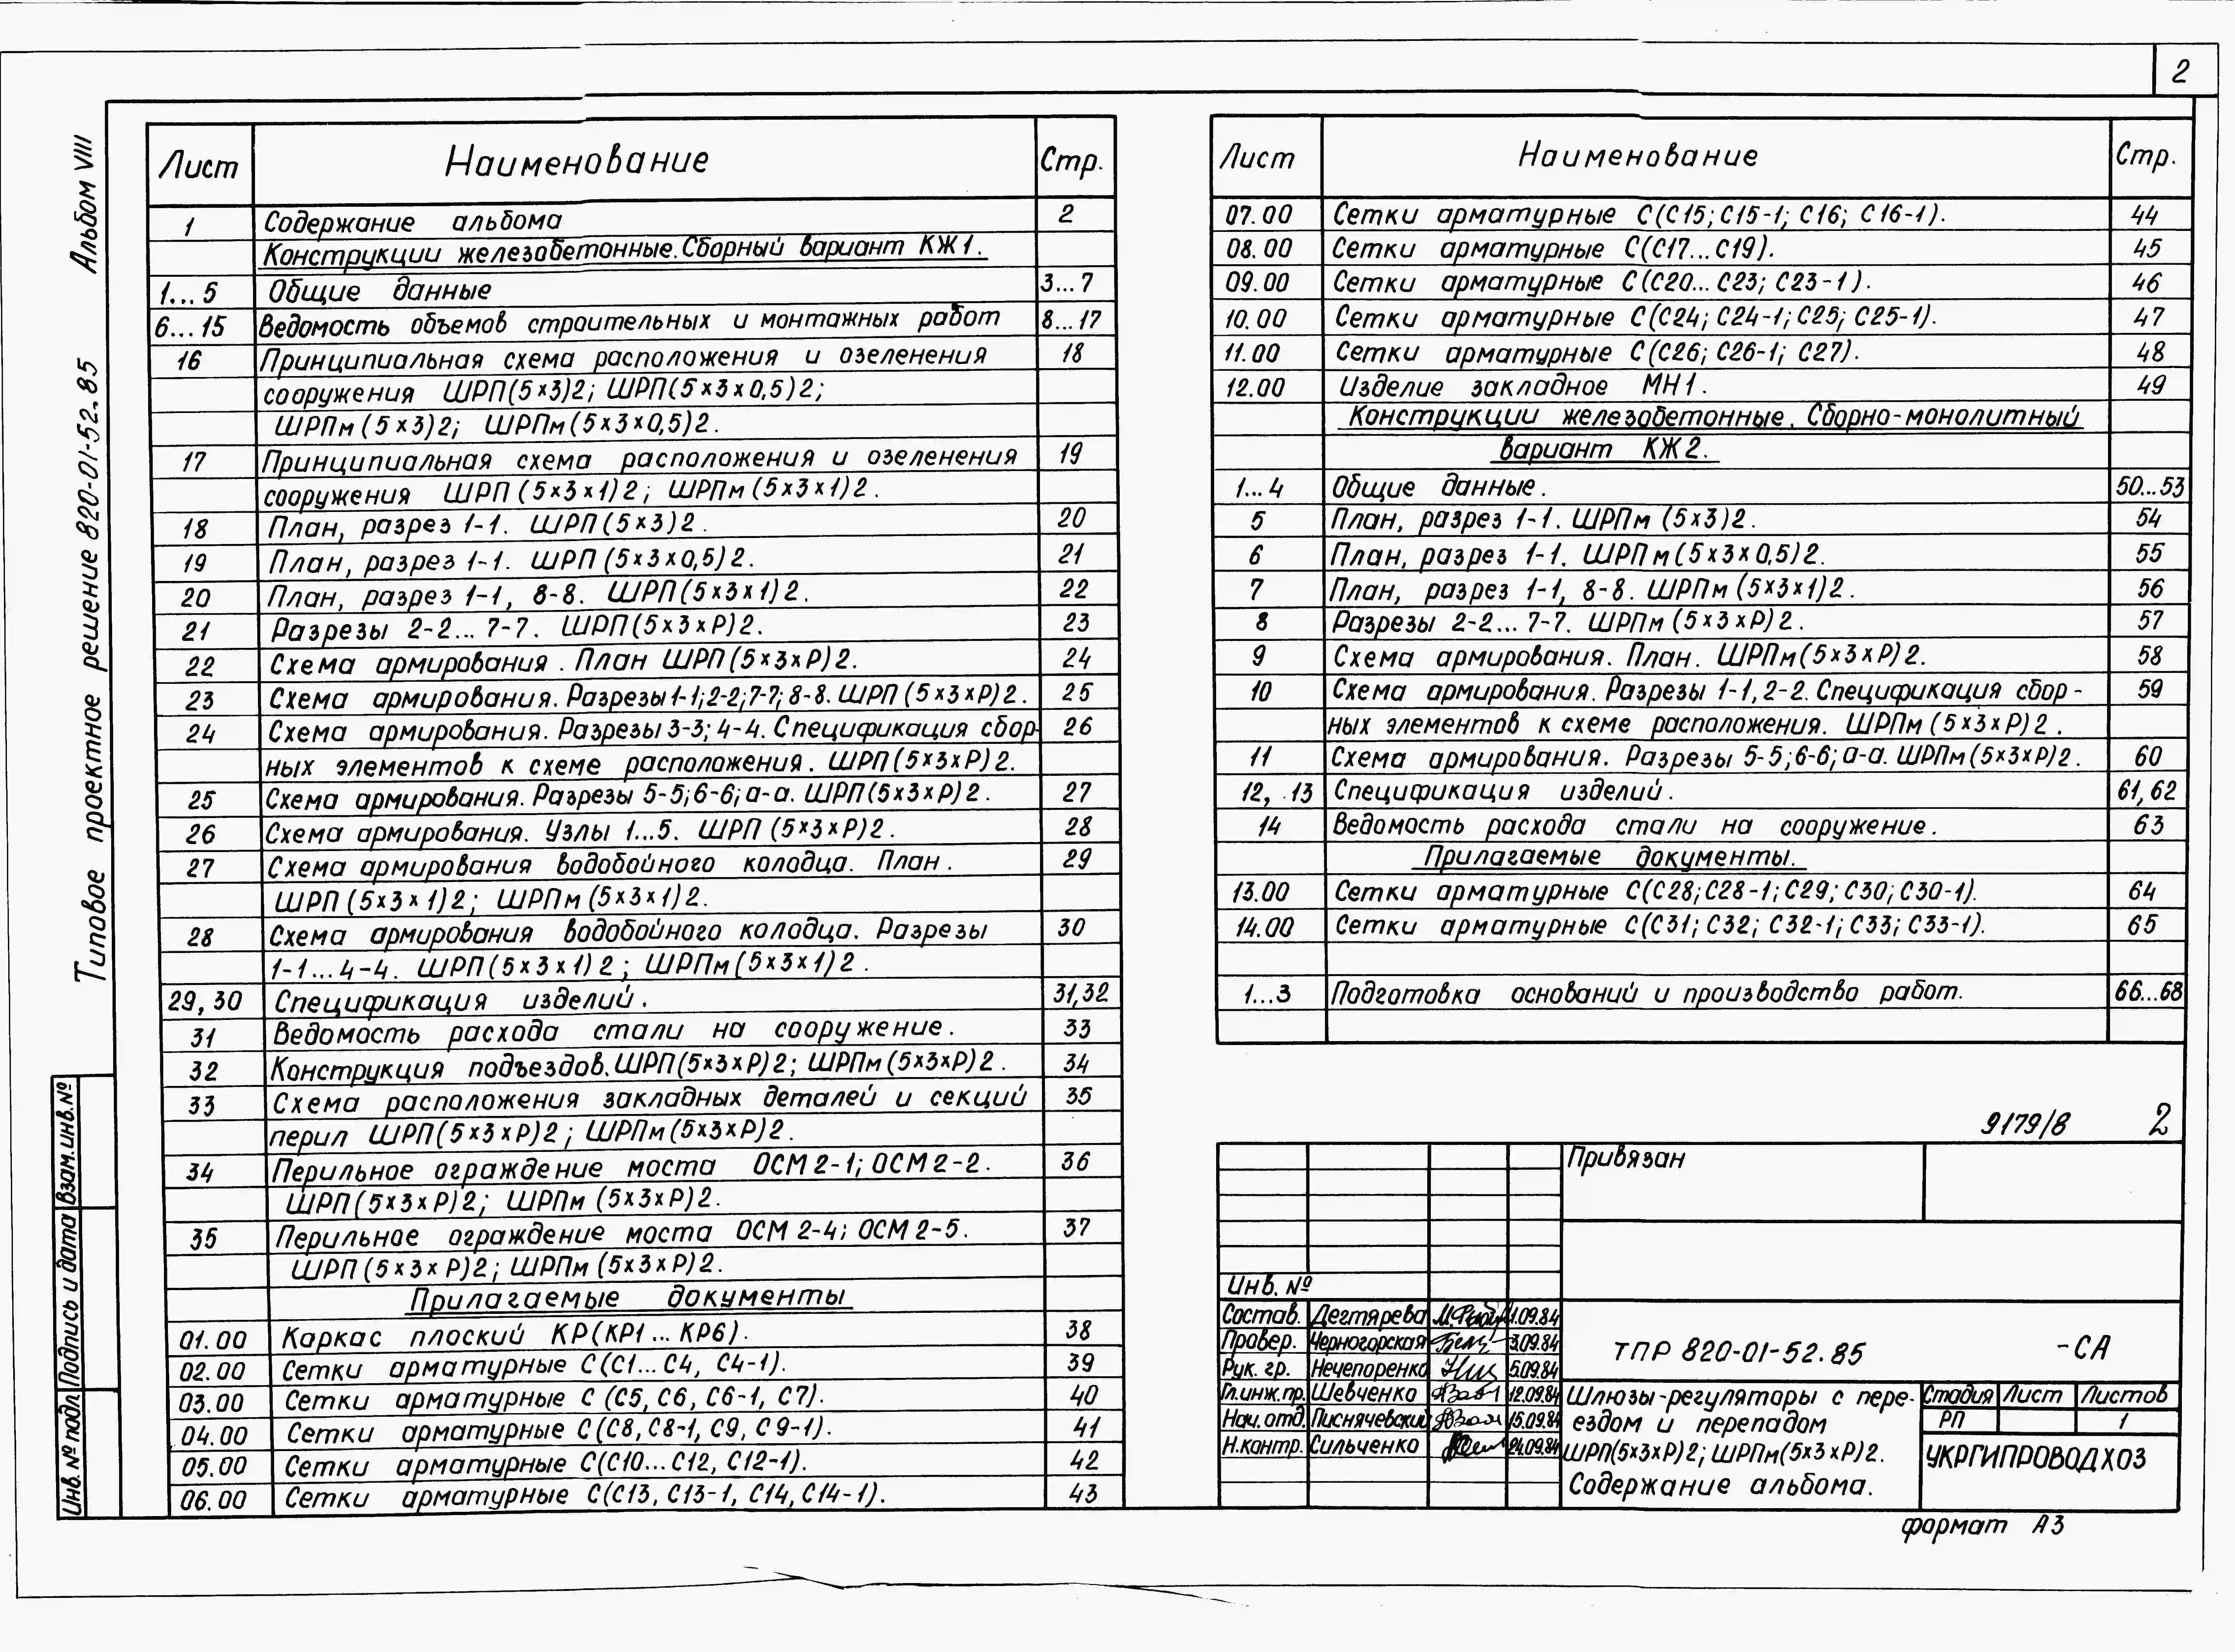 2
Альбом VIII
Типовое проектное решение 820-01-52.85
Лист Наименование Стр.
1 Содержание альбома 2
Конструкции железобетонные. Сборный вариант КЖ1.
1...5 Общие данные 3...7
6...15 Ведомость объемов строительных и монтажных работ 8...17
16 Принципиальная схема расположения и озеленения 18
сооружения ШРП(5×3)2; ШРП(5×3×0,5)2;
ШРПм(5×3)2; ШРПм(5×3×0,5)2.
17 Принципиальная схема расположения и озеленения 19
сооружения ШРП(5×3×1)2; ШРПм(5×3×1)2.
18 План, разрез 1-1. ШРП(5×3)2. 20
19 План, разрез 1-1. ШРП(5×3×0,5)2. 21
20 План, разрез 1-1, 8-8. ШРП(5×3×1)2. 22
21 Разрезы 2-2...7-7. ШРП(5×3×Р)2. 23
22 Схема армирования. План ШРП(5×3×Р)2. 24
23 Схема армирования. Разрезы 1-1; 2-2; 7-7; 8-8. ШРП(5×3×Р)2. 25
24 Схема армирования. Разрезы 3-3; 4-4. Спецификация сбор- 26
ных элементов к схеме расположения. ШРП(5×3×Р)2.
25 Схема армирования. Разрезы 5-5; 6-6; а-а. ШРП(5×3×Р)2. 27
26 Схема армирования. Узлы 1...5. ШРП(5×3×Р)2. 28
27 Схема армирования водобойного колодца. План. 29
ШРП(5×3×1)2; ШРПм(5×3×1)2.
28 Схема армирования водобойного колодца. Разрезы 30
1-1...4-4. ШРП(5×3×1)2; ШРПм(5×3×1)2.
29, 30 Спецификация изделий. 31,32
31 Ведомость расхода стали на сооружение. 33
32 Конструкция подъездов. ШРП(5×3×Р)2; ШРПм(5×3×Р)2. 34
33 Схема расположения закладных деталей и секций 35
перил ШРП(5×3×Р)2; ШРПм(5×3×Р)2.
34 Перильное ограждение моста ОСМ2-1; ОСМ2-2. 36
ШРП(5×3×Р)2; ШРПм(5×3×Р)2.
35 Перильное ограждение моста ОСМ2-4; ОСМ2-5. 37
ШРП(5×3×Р)2; ШРПм(5×3×Р)2.
Прилагаемые документы
01.00 Каркас плоский КР(КР1...КР6). 38
02.00 Сетки арматурные С(С1...С4, С4-1). 39
03.00 Сетки арматурные С(С5, С6, С6-1, С7). 40
04.00 Сетки арматурные С(С8, С8-1, С9, С9-1). 41
05.00 Сетки арматурные С(С10...С12, С12-1). 42
06.00 Сетки арматурные С(С13, С13-1, С14, С14-1). 43
Лист Наименование Стр.
07.00 Сетки арматурные С(С15; С15-1; С16; С16-1). 44
08.00 Сетки арматурные С(С17...С19). 45
09.00 Сетки арматурные С(С20...С23; С23-1). 46
10.00 Сетки арматурные С(С24; С24-1; С25; С25-1). 47
11.00 Сетки арматурные С(С26; С26-1; С27). 48
12.00 Изделие закладное МН1. 49
Конструкции железобетонные. Сборно-монолитный
вариант КЖ2.
1...4 Общие данные. 50...53
5 План, разрез 1-1. ШРПм(5×3)2. 54
6 План, разрез 1-1. ШРПм(5×3×0,5)2. 55
7 План, разрез 1-1, 8-8. ШРПм(5×3×1)2. 56
8 Разрезы 2-2...7-7. ШРПм(5×3×Р)2. 57
9 Схема армирования. План. ШРПм(5×3×Р)2. 58
10 Схема армирования. Разрезы 1-1, 2-2. Спецификация сбор- 59
ных элементов к схеме расположения. ШРПм(5×3×Р)2.
11 Схема армирования. Разрезы 5-5; 6-6; а-а. ШРПм(5×3×Р)2. 60
12, 13 Спецификация изделий. 61,62
14 Ведомость расхода стали на сооружение. 63
Прилагаемые документы.
13.00 Сетки арматурные С(С28; С28-1; С29; С30; С30-1). 64
14.00 Сетки арматурные С(С31; С32; С32-1; С33; С33-1). 65
1...3 Подготовка оснований и производство работ. 66...68
9179/8 2
Привязан
Инв. №
Состав. Дегтярева 1.09.84
Провер. Черногорская 3.09.84
Рук. гр. Нечепоренко 5.09.84
Гл.инж.пр. Шевченко 12.09.84
Нач. отд. Писнячевский 15.09.84
Н.контр. Сильченко 24.09.84
ТПР 820-01-52.85 -СА
Шлюзы-регуляторы с пере-
ездом и перепадом
ШРП(5×3×Р)2; ШРПм(5×3×Р)2.
Содержание альбома.
Стадия Лист Листов
РП 1
УКРГИПРОВОДХОЗ
формат А3
Инв.№ подл. Подпись и дата Взам.инв.№